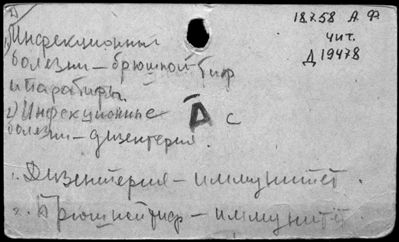 1) Инфекционные
болезни – брюшной тиф
и паратифы.
2) Инфекционные
болезни – дизентерия.
18758 А Ф
чит.
Д 19478
А с
1. Дизентерия – иммунитет.
2. Брюшной тиф – иммунитет